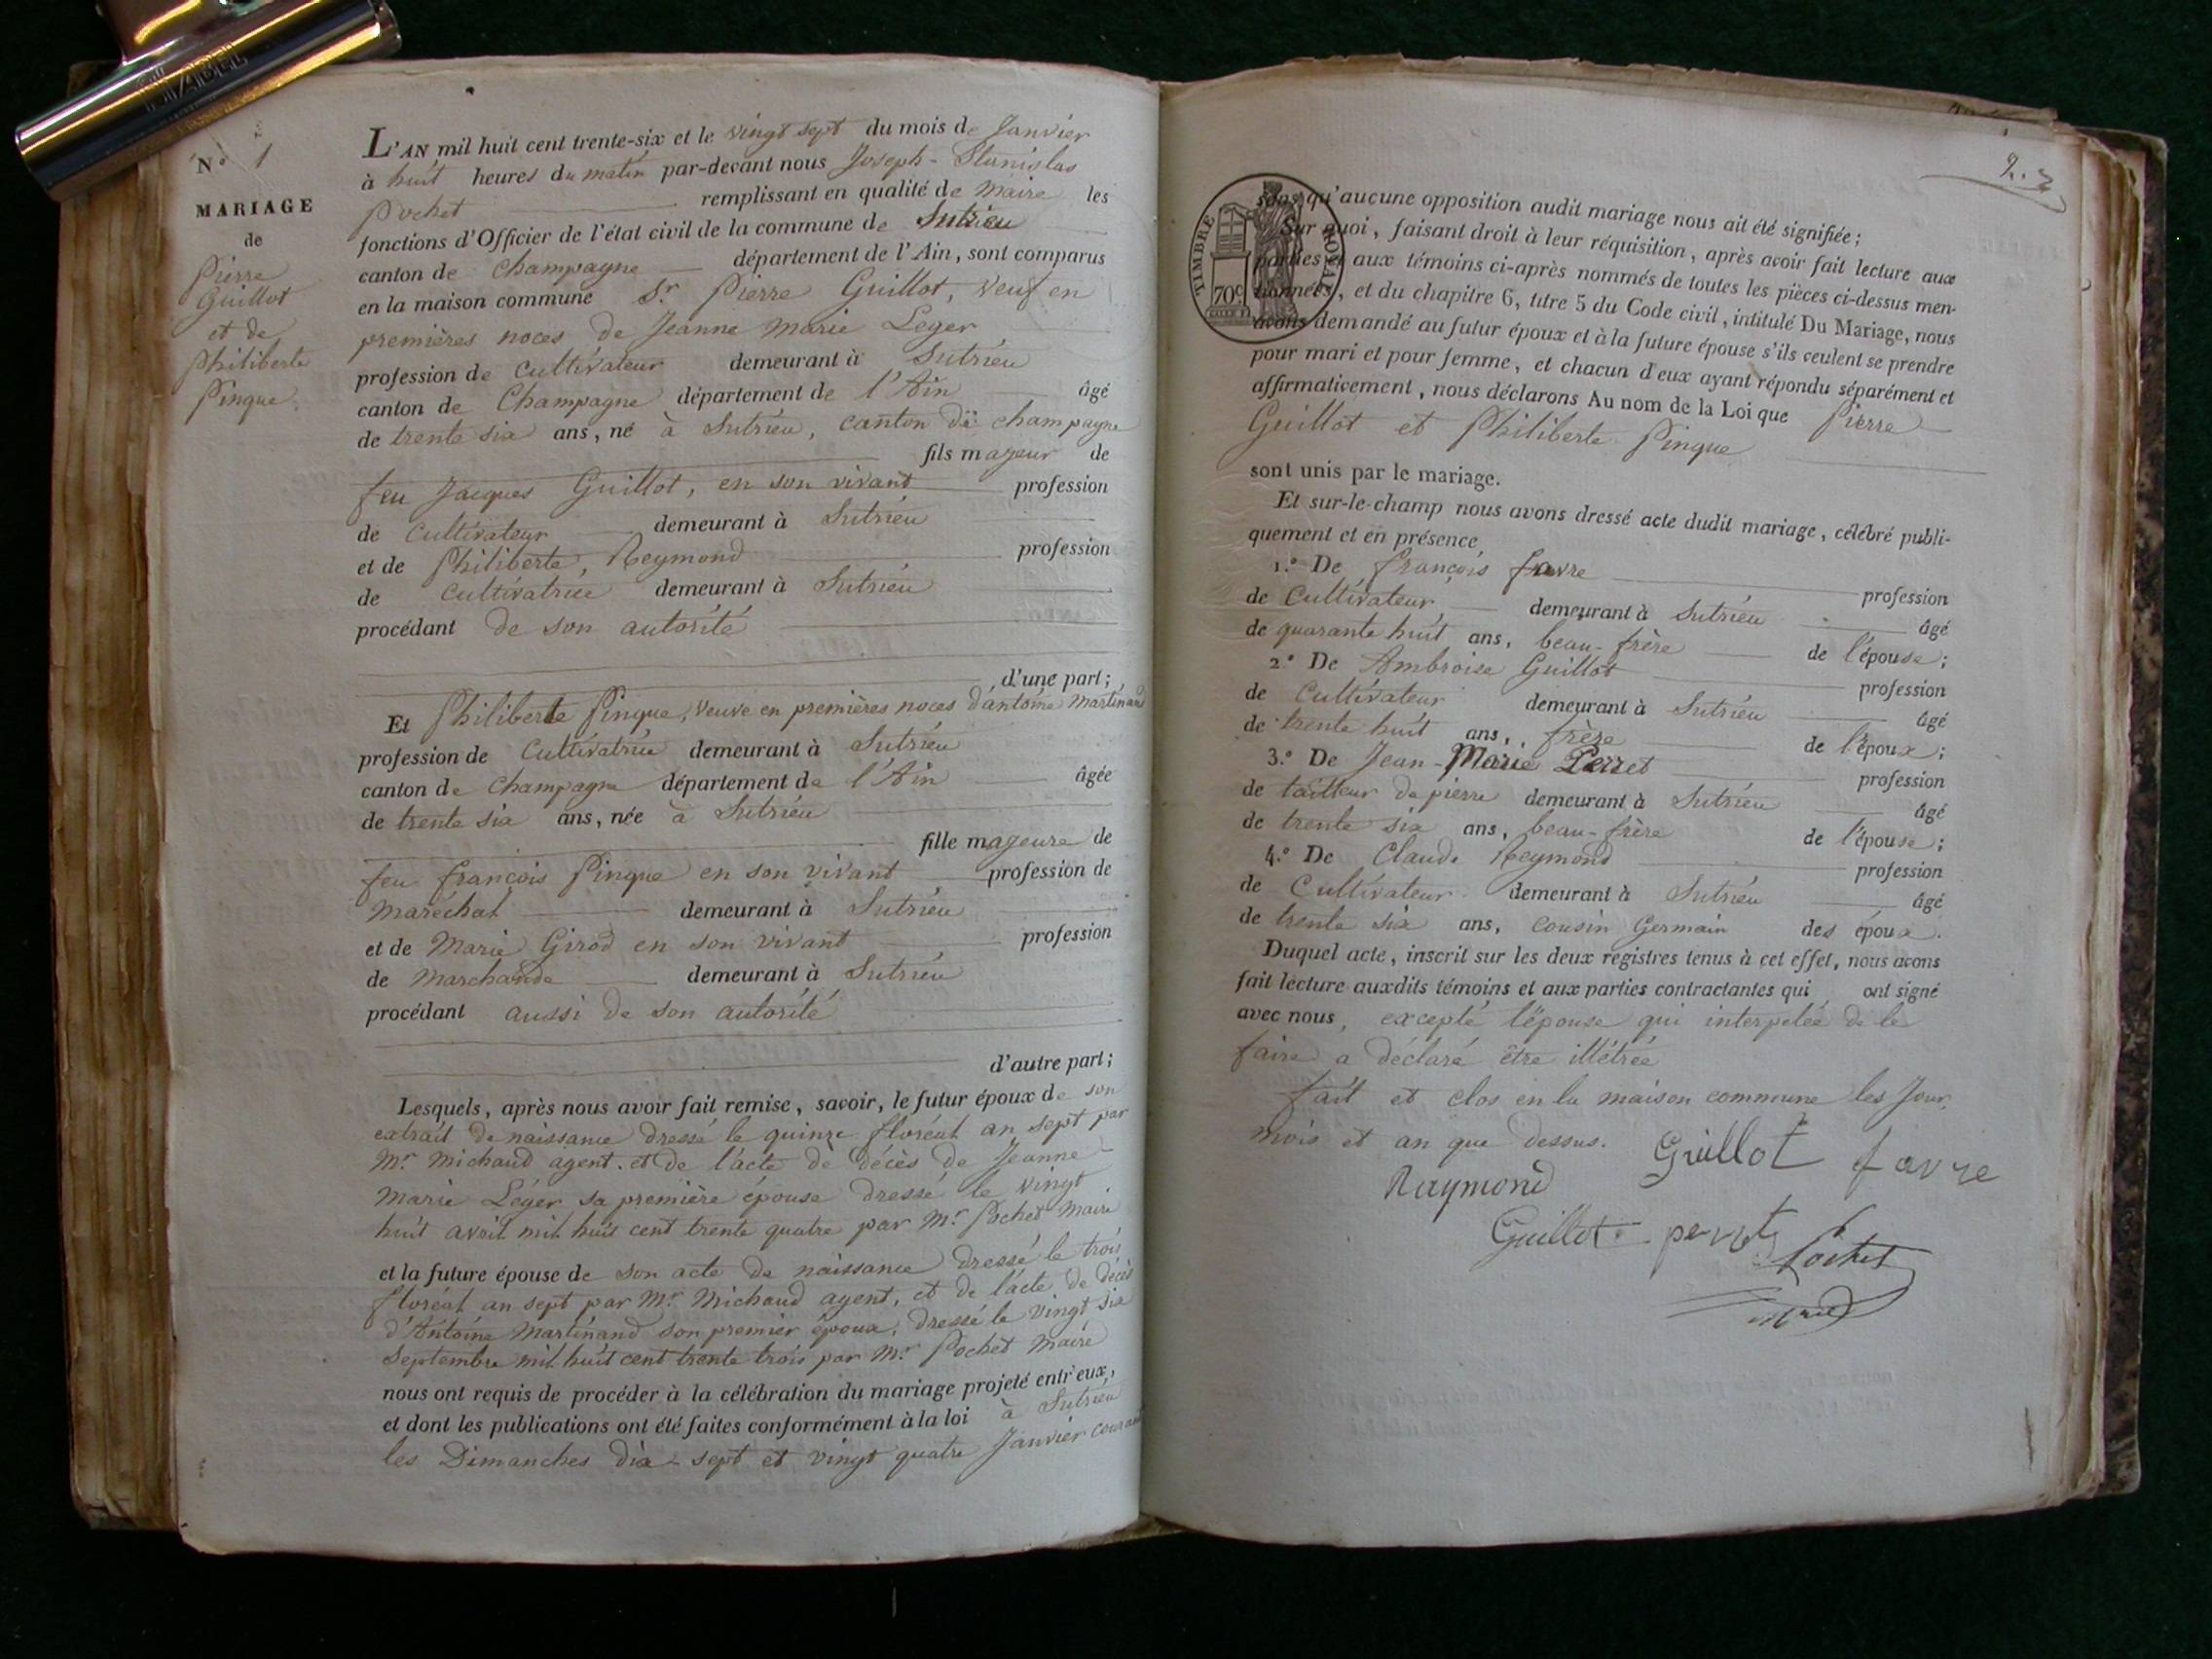 STABEL
N° 1
MARIAGE
de
Pierre
Guillot
et de
Philiberte
Pinque.
L'AN mil huit cent trente-six et le vingt sept du mois de Janvier
à huit heures du matin par-devant nous Joseph-Stanislas
Pochet remplissant en qualité de maire les
fonctions d'Officier de l'état civil de la commune de Sutrieu
canton de Champagne département de l'Ain, sont comparus
en la maison commune Sr Pierre Guillot, veuf en
premières noces de Jeanne Marie Leger
profession de Cultivateur demeurant à Sutrieu
canton de Champagne département de l'Ain âgé
de trente six ans, né à Sutrieu, canton de champagne
fils majeur de
feu Jacques Guillot, en son vivant profession
de Cultivateur demeurant à Sutrieu
et de Philiberte, Reymond profession
de Cultivatrice demeurant à Sutrieu
procédant de son autorité
d'une part;
Et Philiberte Pinque, veuve en premières noces d'antoine Martinand
profession de Cultivatrice demeurant à Sutrieu
canton de Champagne département de l'Ain âgée
de trente six ans, née à Sutrieu
fille majeure de
feu françois Pinque en son vivant profession de
Maréchal demeurant à Sutrieu
et de Marie Girod en son vivant profession
de Marchande demeurant à Sutrieu
procédant aussi de son autorité
d'autre part;
Lesquels, après nous avoir fait remise, savoir, le futur époux de son
extrait de naissance dressé le quinze floréal an sept par
Mr Michaud agent. et de l'acte de décès de Jeanne-
Marie Léger sa première épouse dressé le vingt
huit avril mil huit cent trente quatre par Mr Pochet Maire
et la future épouse de son acte de naissance dressé le trois
floréal an sept par Mr Michaud agent, et de l'acte de décès
d'Antoine Martinand son premier époux, dressé le vingt six
Septembre mil huit cent trente trois par Mr Pochet Maire
nous ont requis de procéder à la célébration du mariage projeté entr'eux,
et dont les publications ont été faites conformément à la loi à Sutrieu
les Dimanches dix-sept et vingt quatre Janvier courant
2.
TIMBRE ROYAL
70c
sans qu'aucune opposition audit mariage nous ait été signifiée;
Sur quoi, faisant droit à leur réquisition, après avoir fait lecture aux
parties et aux témoins ci-après nommés de toutes les pièces ci-dessus men-
tionnées, et du chapitre 6, titre 5 du Code civil, intitulé Du Mariage, nous
avons demandé au futur époux et à la future épouse s'ils veulent se prendre
pour mari et pour femme, et chacun d'eux ayant répondu séparément et
affirmativement, nous déclarons Au nom de la Loi que Pierre
Guillot et Philiberte Pinque
sont unis par le mariage.
Et sur-le-champ nous avons dressé acte dudit mariage, célébré publi-
quement et en présence
1.° De françois favre profession
de Cultivateur demeurant à Sutrieu âgé
de quarante huit ans, beau-frère de l'épouse;
2.° De Ambroise Guillot profession
de Cultivateur demeurant à Sutrieu âgé
de trente huit ans, frère de l'époux;
3.° De Jean-Marie Perret profession
de tailleur de pierre demeurant à Sutrieu âgé
de trente six ans, beau-frère de l'épouse;
4.° De Claude Reymond profession
de Cultivateur demeurant à Sutrieu âgé
de trente six ans, cousin Germain des époux.
Duquel acte, inscrit sur les deux registres tenus à cet effet, nous avons
fait lecture auxdits témoins et aux parties contractantes qui ont signé
avec nous, excepté l'épouse qui interpelée de le
faire a déclaré être illétrée
fait et clos en la maison commune les Jour,
mois et an que dessus. Guillot favre
Raymond
Guillot perret Pochet